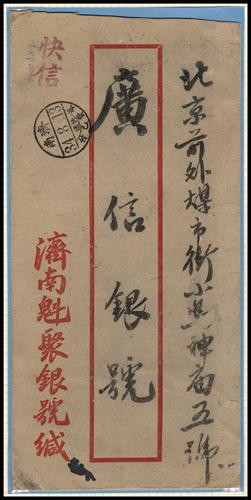 北京前外煤市街小馬神廟五號
廣信銀號
快信
濟南
24.8.13
濟南魁聚銀號緘